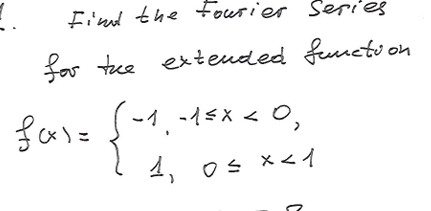 1. Find the Fourier Series
for the extended function
f(x) = { -1, -1 ≤ x < 0,
1, 0 ≤ x < 1